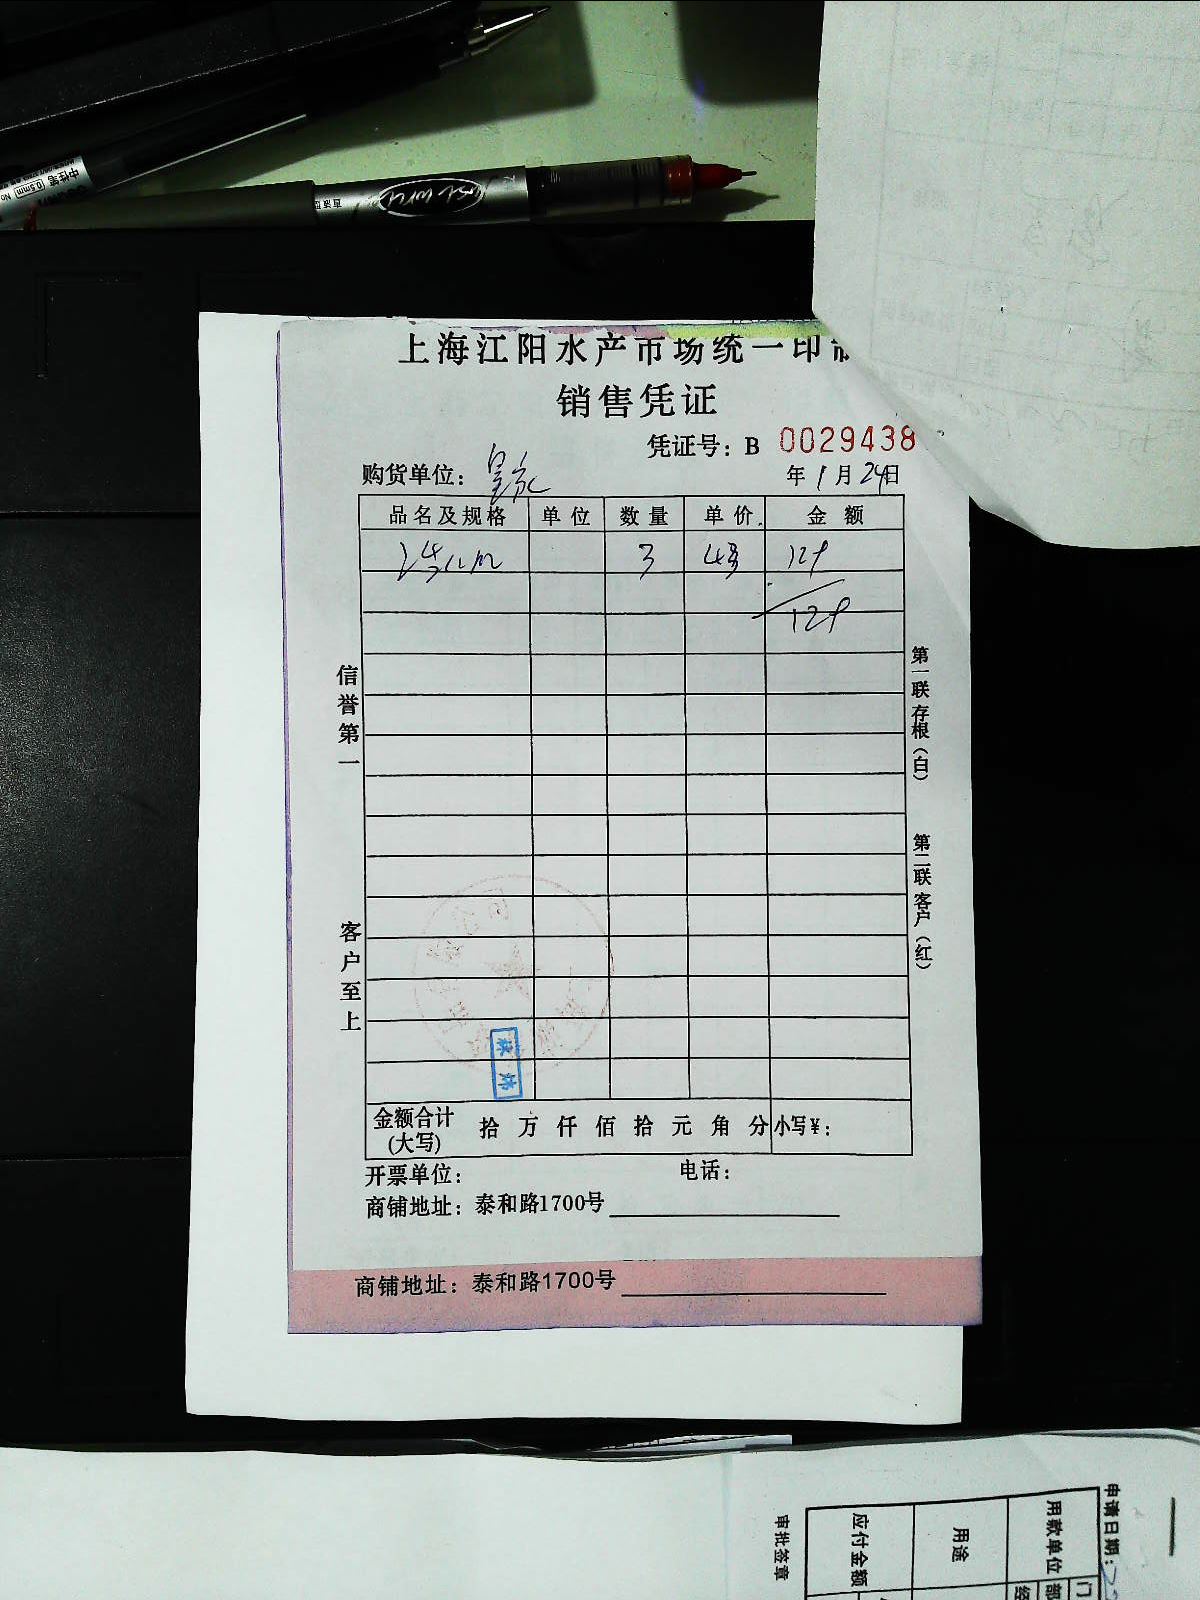 中性笔 0.5mm No
直液
上海江阳水产市场统一印制
销售凭证
凭证号：B 0029438
购货单位：
年 1 月 24 日
品名及规格 单位 数量 单价 金额
3 129
129
信誉第一
客户至上
第一联 存根（白）
第二联 客户（红）
金额合计（大写） 拾 万 仟 佰 拾 元 角 分 小写¥：
开票单位： 电话：
商铺地址：泰和路1700号
商铺地址：泰和路1700号
申请日期：
用款单位
用途
应付金额
审批签章